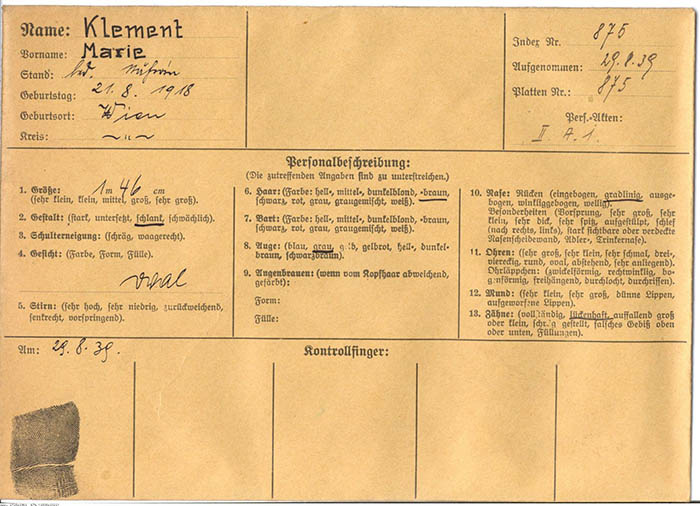 Name: Klement
Vorname: Marie
Stand: led.
Geburtstag: 21. 8. 1918
Geburtsort: Wien
Kreis: – „ –
Index Nr. 875
Aufgenommen: 29. 8. 39
Platten Nr.: 875
Pers.-Akten:
II A. 1.
Personalbeschreibung:
(Die zutreffenden Angaben sind zu unterstreichen.)
1. Größe: 1 m 46 cm
(sehr klein, klein, mittel, groß, sehr groß).
2. Gestalt: (stark, untersetzt, schlank, schwächlich).
3. Schulterneigung: (schräg, waagerecht).
4. Gesicht: (Farbe, Form, Fülle).
oval
5. Stirn: (sehr hoch, sehr niedrig, zurückweichend,
senkrecht, vorspringend).
6. Haar: (Farbe: hell-, mittel-, dunkelblond, -braun,
schwarz, rot, grau, graugemischt, weiß).
7. Bart: (Farbe: hell-, mittel-, dunkelblond, -braun,
schwarz, rot, grau, graugemischt, weiß).
8. Auge: (blau, grau, gelb, gelbrot, hell-, dunkel-
braun, schwarzbraun).
9. Augenbrauen: (wenn vom Kopfhaar abweichend,
gefärbt):
Form:
Fülle:
10. Nase: Rücken (eingebogen, gradlinig, ausge-
bogen, winkliggebogen, wellig).
Besonderheiten (Vorsprung, sehr groß, sehr
klein, sehr dick, sehr spitz, aufgestülpt, schief
(nach rechts, links), stark sichtbare oder verdeckte
Nasenscheidewand, Adler-, Trinkernase).
11. Ohren: (sehr groß, sehr klein, sehr schmal, drei-
viereckig, rund, oval, abstehend, sehr anliegend).
Ohrläppchen: (zwickelförmig, rechtwinklig, bo-
genförmig, freihängend, durchlocht, durchrissen).
12. Mund: (sehr klein, sehr groß, dünne Lippen,
aufgeworfene Lippen).
13. Zähne: (vollständig, lückenhaft, auffallend groß
oder klein, schräg gestellt, falsches Gebiß oben
oder unten, Füllungen).
Am: 29. 8. 39.
Kontrollfinger: